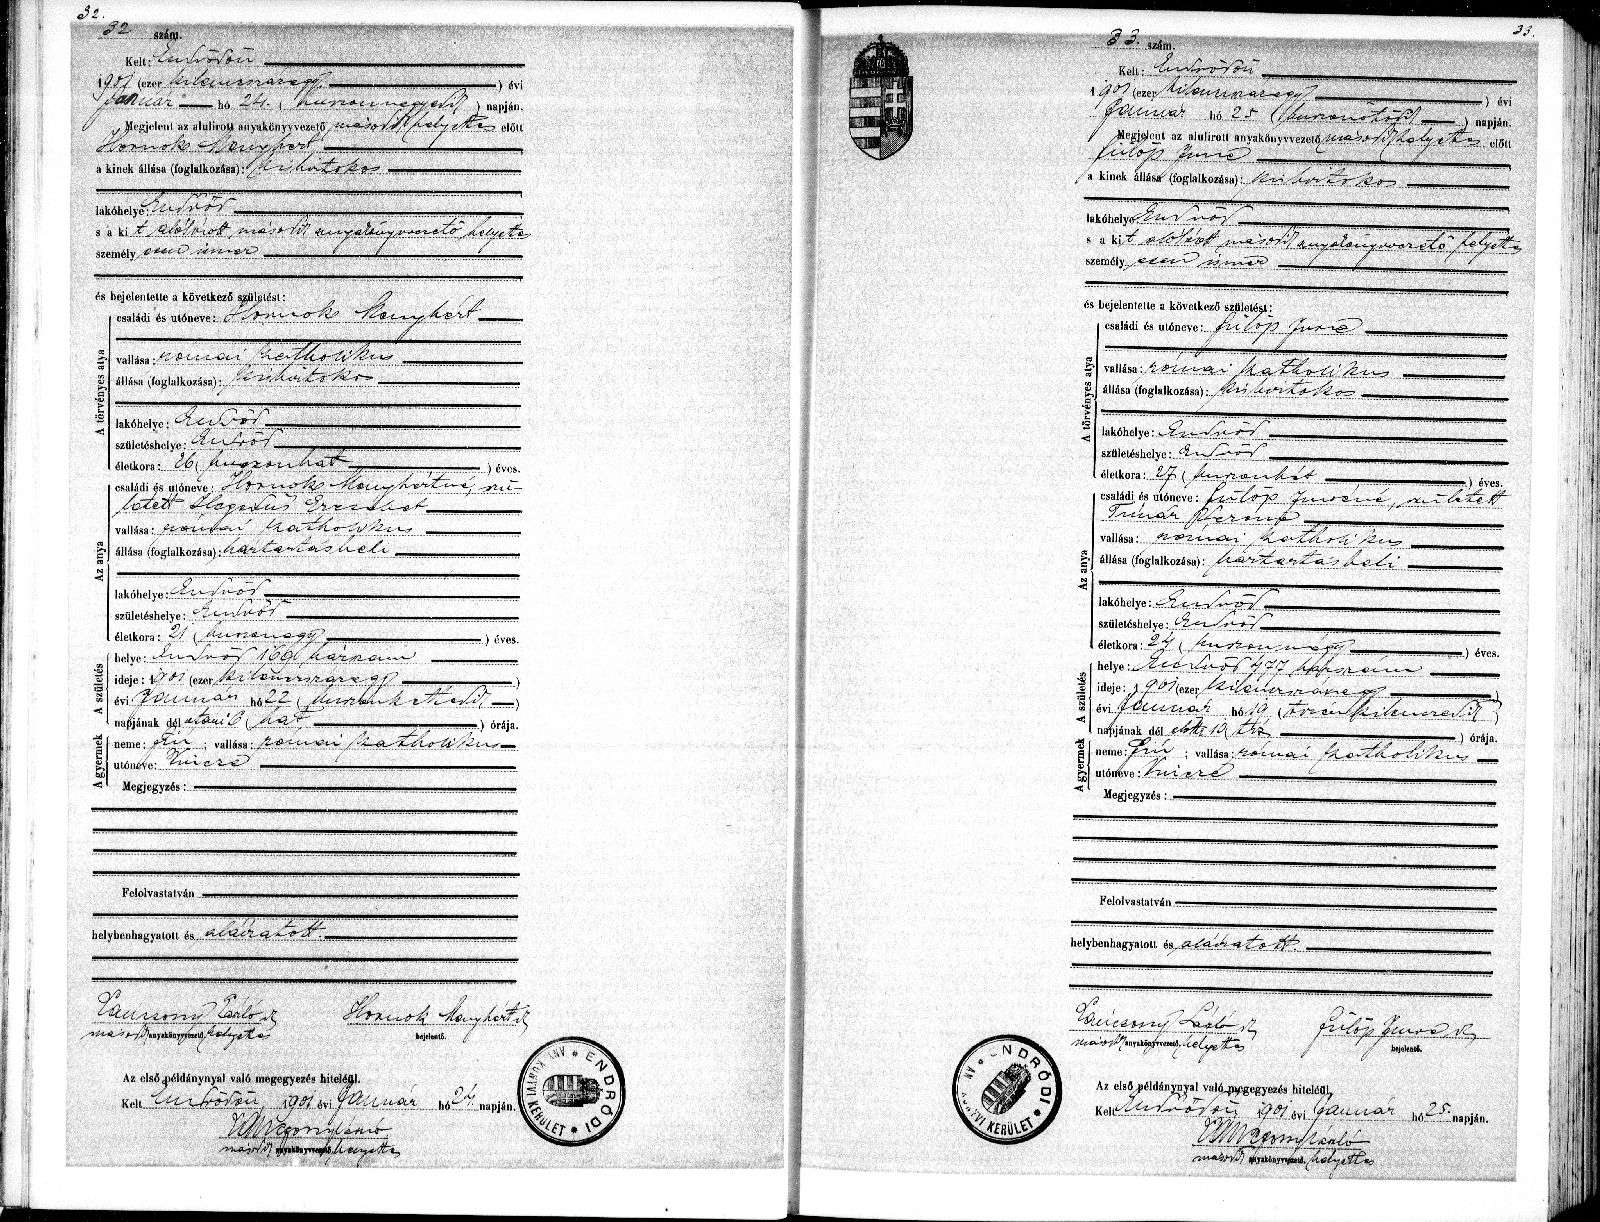 32.
32 szám.
Kelt: Endrődön
1901 (ezer kilencszázegy) évi
Január hó 24. (huszonnegyedik) napján.
Megjelent az alulirott anyakönyvvezető második helyettes előtt
Hornok Menyhért,
a kinek állása (foglalkozása): kisbirtokos
lakóhelye: Endrőd
s a kit alólirott második anyakönyvvezető helyettes
személyesen ismer
és bejelentette a következő születést:
A törvényes atya
családi és utóneve: Hornok Menyhért
vallása: római katholikus
állása (foglalkozása): kisbirtokos
lakóhelye: Endrőd
születéshelye: Endrőd
életkora: 26 (huszonhat) éves.
Az anya
családi és utóneve: Hornok Menyhértné, szü-
letett Hegedüs Erzsébet
vallása: római katholikus
állása (foglalkozása): háztartásbeli
lakóhelye: Endrőd
születéshelye: Endrőd
életkora: 21 (huszonegy) éves.
A születés
helye: Endrőd 169 házszám
ideje: 1901 (ezer kilencszázegy)
évi Január hó 22 (huszonkettedik)
napjának dél utáni 6 (hat) órája.
A gyermek
neme: fiú; vallása: római katholikus
utóneve: Vincze
Megjegyzés:
Felolvastatván
helybenhagyatott és aláiratott.
László sk
második anyakönyvvezető helyettes
Hornok Menyhért sk
bejelentő.
Az első példánynyal való megegyezés hiteléül.
Kelt Endrődön 1901 évi Január hó 24. napján.
László
második anyakönyvvezető helyettes
ENDRŐDI ANYAKÖNYVI KERÜLET
33.
33. szám.
Kelt: Endrődön
1901 (ezer kilencszázegy) évi
Január hó 25 (huszonötödik) napján.
Megjelent az alulirott anyakönyvvezető második helyettes előtt
Fülöp Imre
a kinek állása (foglalkozása): kisbirtokos
lakóhelye Endrőd
s a kit alólirott második anyakönyvvezető helyettes
személyesen ismer
és bejelentette a következő születést:
A törvényes atya
családi és utóneve: Fülöp Imre
vallása: római katholikus
állása (foglalkozása): kisbirtokos
lakóhelye: Endrőd
születéshelye: Endrőd
életkora: 27 (huszonhét) éves.
Az anya
családi és utóneve: Fülöp Imréné, született
Timár
vallása: római katholikus
állása (foglalkozása): háztartásbeli
lakóhelye: Endrőd
születéshelye: Endrőd
életkora: 24 (huszonnégy) éves.
A születés
helye: Endrőd 477 házszám
ideje: 1901 (ezer kilencszázegy)
évi Január hó 19 (tizenkilencedik)
napjának dél előtti 10 (tiz) órája.
A gyermek
neme: fiú; vallása: római katholikus
utóneve: Vincze
Megjegyzés:
Felolvastatván
helybenhagyatott és aláiratott.
László sk
második anyakönyvvezető helyettes
Fülöp Imre sk
bejelentő.
Az első példánynyal való megegyezés hiteléül.
Kelt Endrődön 1901 évi Január hó 25. napján.
László
második anyakönyvvezető helyettes
ENDRŐDI ANYAKÖNYVI KERÜLET